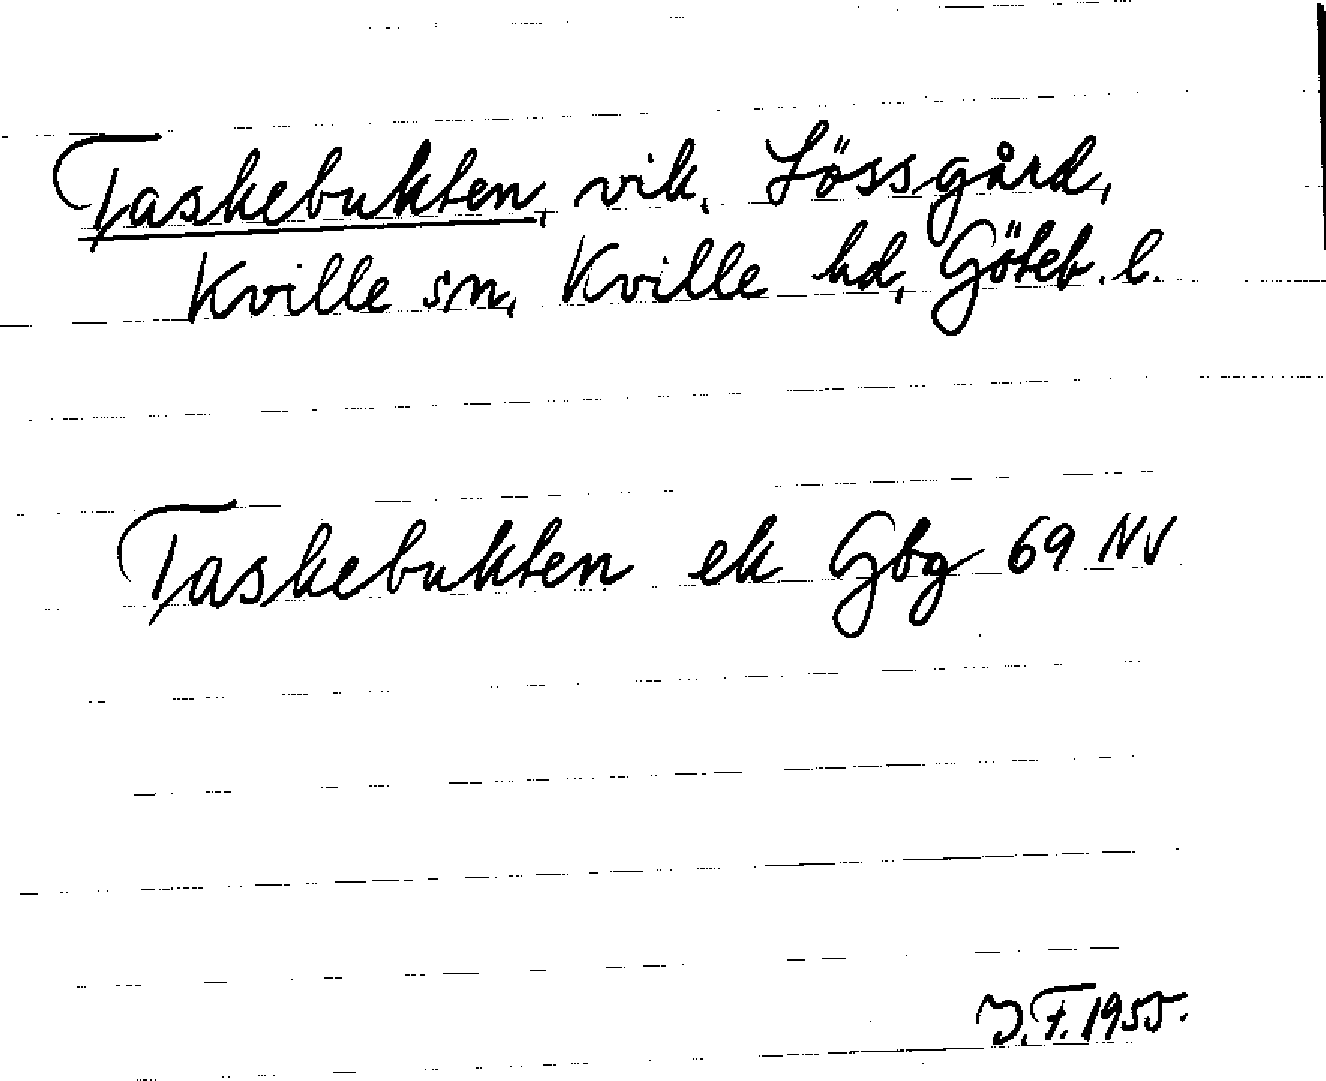 Taskebukten, vik, Lössgård,
Kville sn, Kville hd, Göteb. l.
Taskebukten ek Gbg 69 NV
J.F. 1955.